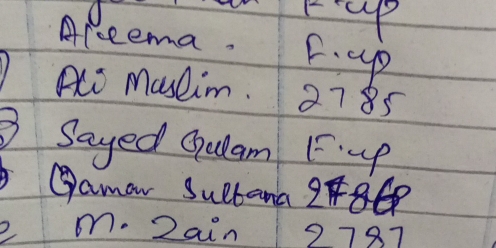 F.up
Aleema. F.up
Ali Muslim. 2785
Sayed Gulam F.up
Qamar Sultana 2786
M. Zain 2787